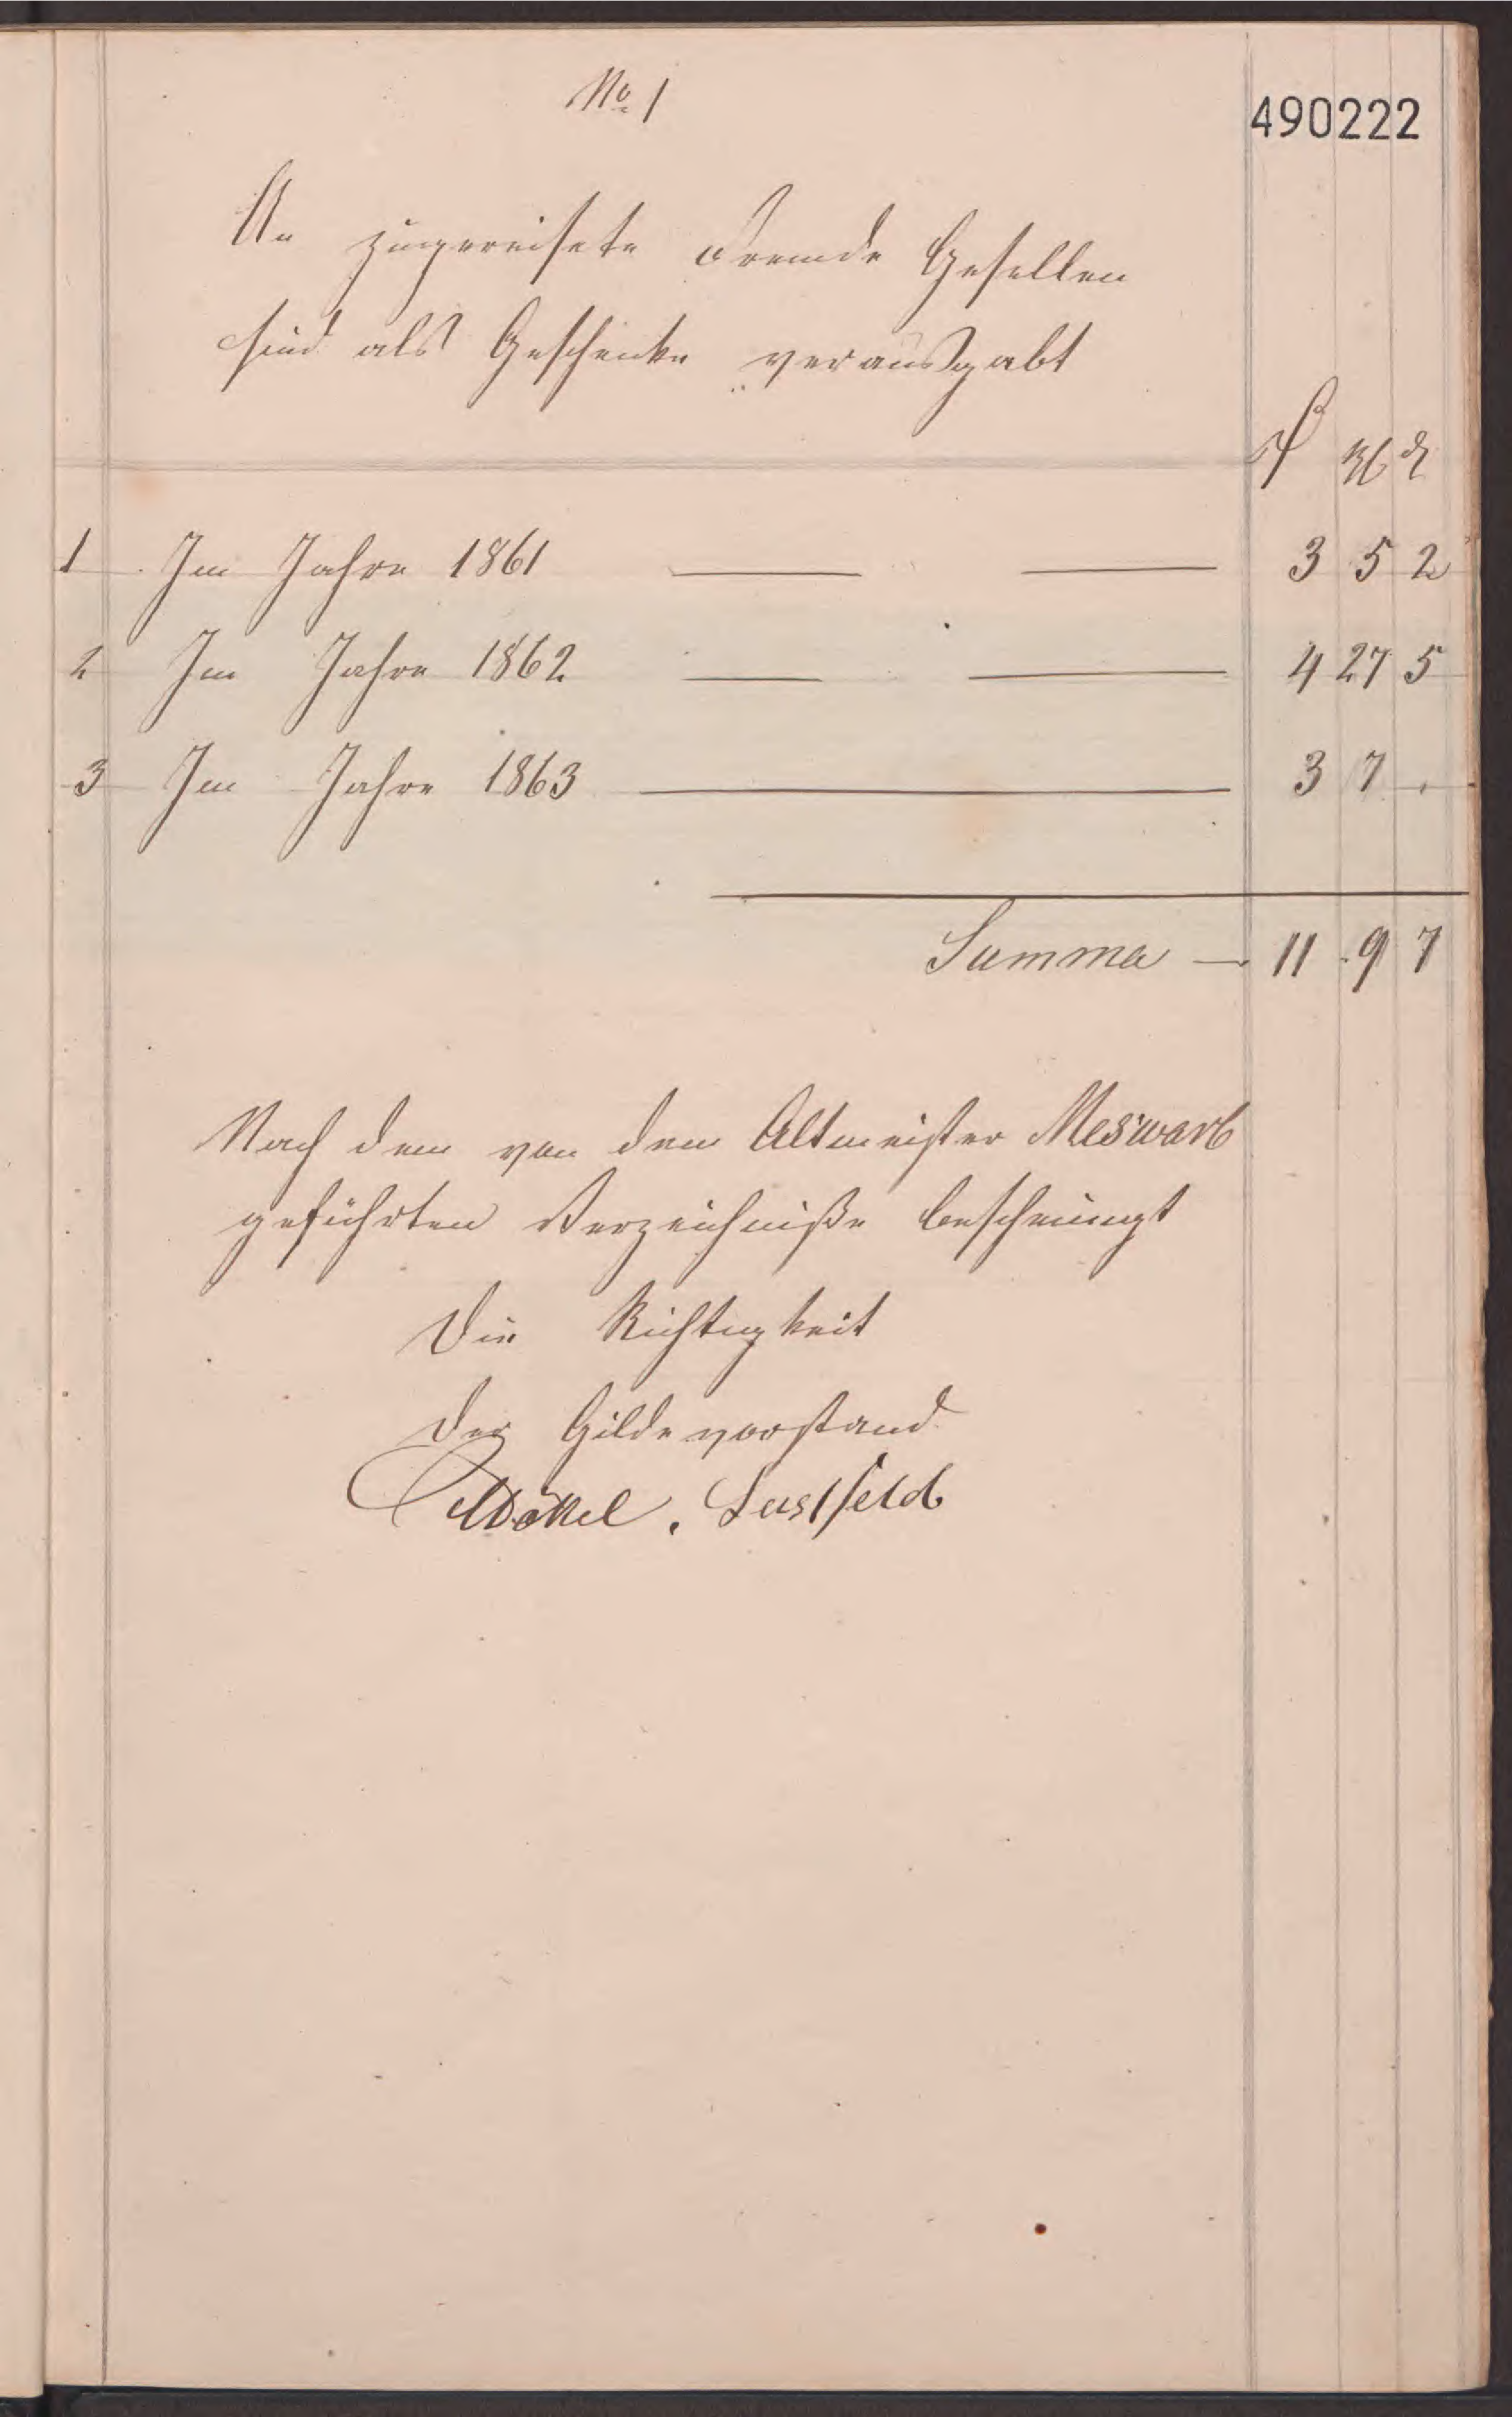 No 1
490222
An zugereisete Fremde Gesellen
sind als Geschenke verausgabt
1 Im Jahre 1861 3 5 2
2 Im Jahre 1862 4 27 5
3 Im Jahre 1863 3 7 .
Summa 11 9 7
Nach dem von dem Altmeister Meswarb
geführten Verzeichniße bescheinigt
Die Richtigkeit
Der Gildevorstand
Lustfeld